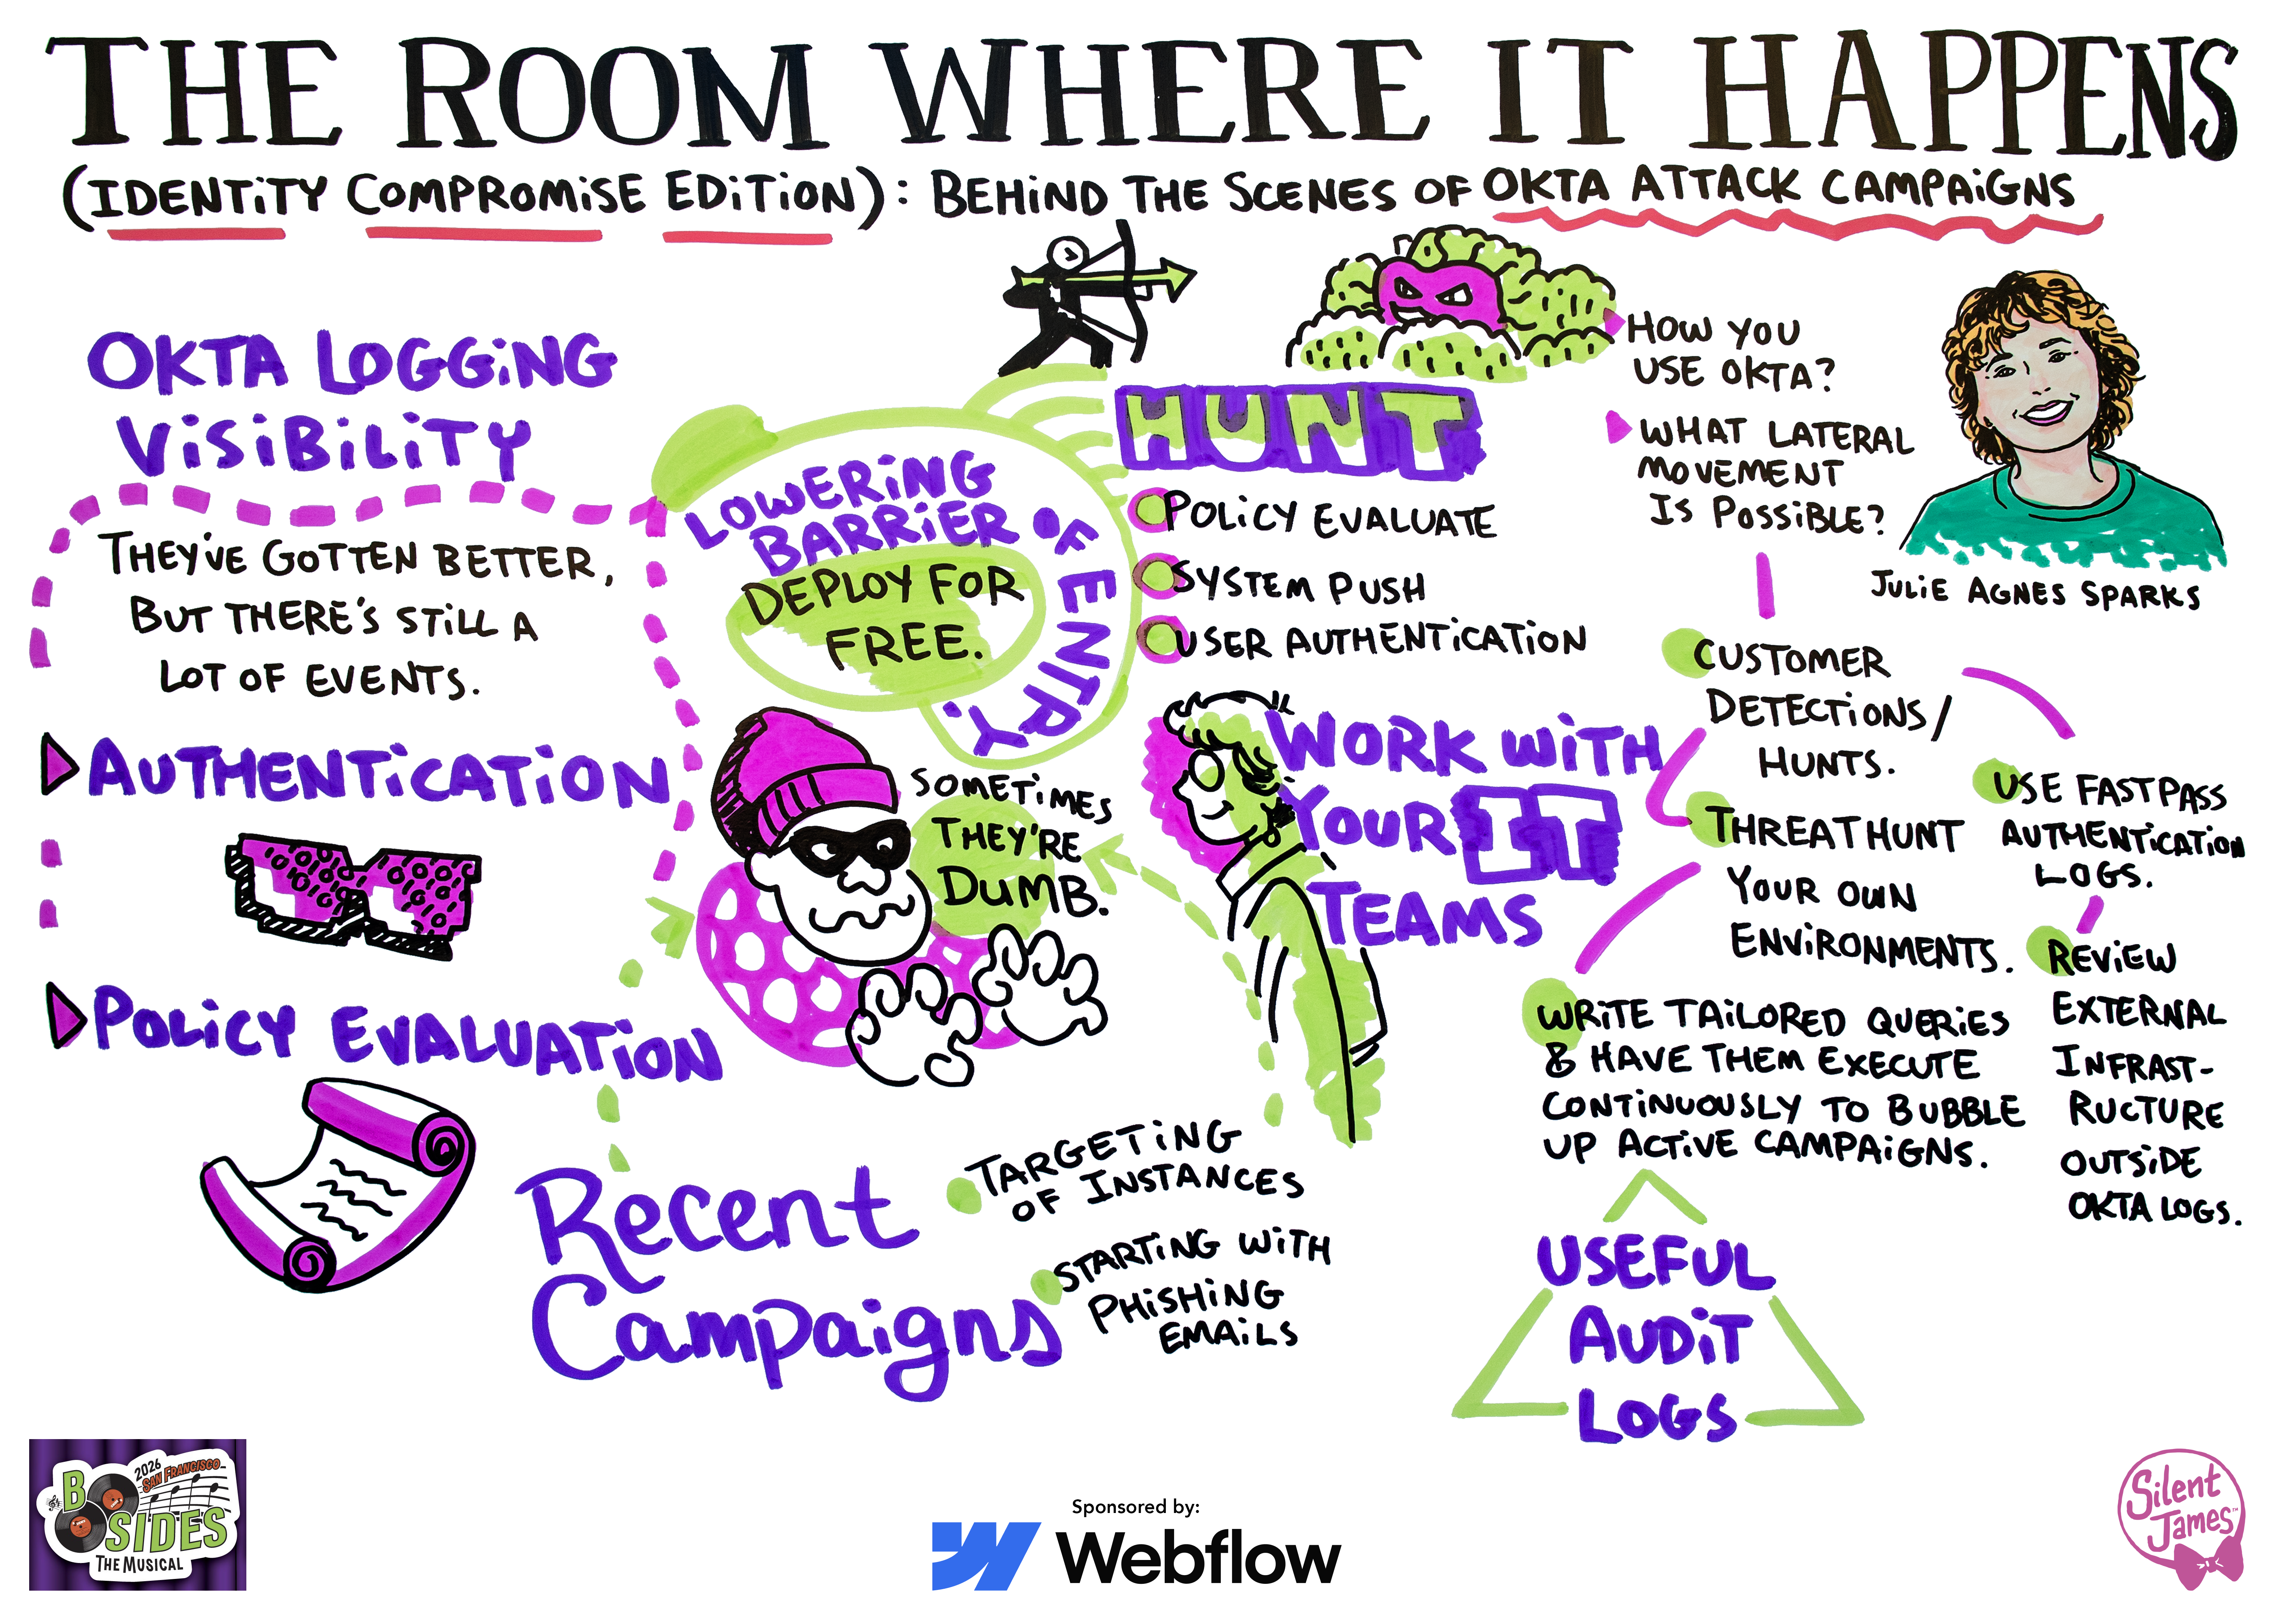 THE ROOM WHERE IT HAPPENS
(IDENTITY COMPROMISE EDITION): BEHIND THE SCENES OF OKTA ATTACK CAMPAIGNS
OKTA LOGGING
VISIBILITY
THEY'VE GOTTEN BETTER,
BUT THERE'S STILL A
LOT OF EVENTS.
AUTHENTICATION
POLICY EVALUATION
LOWERING
BARRIER
OF ENTRY.
DEPLOY FOR
FREE.
SOMETIMES
THEY'RE
DUMB.
RECENT
CAMPAIGNS
TARGETING
OF INSTANCES
STARTING WITH
PHISHING
EMAILS
HUNT
POLICY EVALUATE
SYSTEM PUSH
USER AUTHENTICATION
WORK WITH
YOUR IT
TEAMS
HOW YOU
USE OKTA?
WHAT LATERAL
MOVEMENT
IS POSSIBLE?
JULIE AGNES SPARKS
CUSTOMER
DETECTIONS/
HUNTS.
THREAT HUNT
YOUR OWN
ENVIRONMENTS.
WRITE TAILORED QUERIES
& HAVE THEM EXECUTE
CONTINUOUSLY TO BUBBLE
UP ACTIVE CAMPAIGNS.
USE FASTPASS
AUTHENTICATION
LOGS.
REVIEW
EXTERNAL
INFRAST-
RUCTURE
OUTSIDE
OKTA LOGS.
USEFUL
AUDIT
LOGS
2026
SAN FRANCISCO
B
SIDES
THE MUSICAL
Sponsored by:
Webflow
Silent
James™